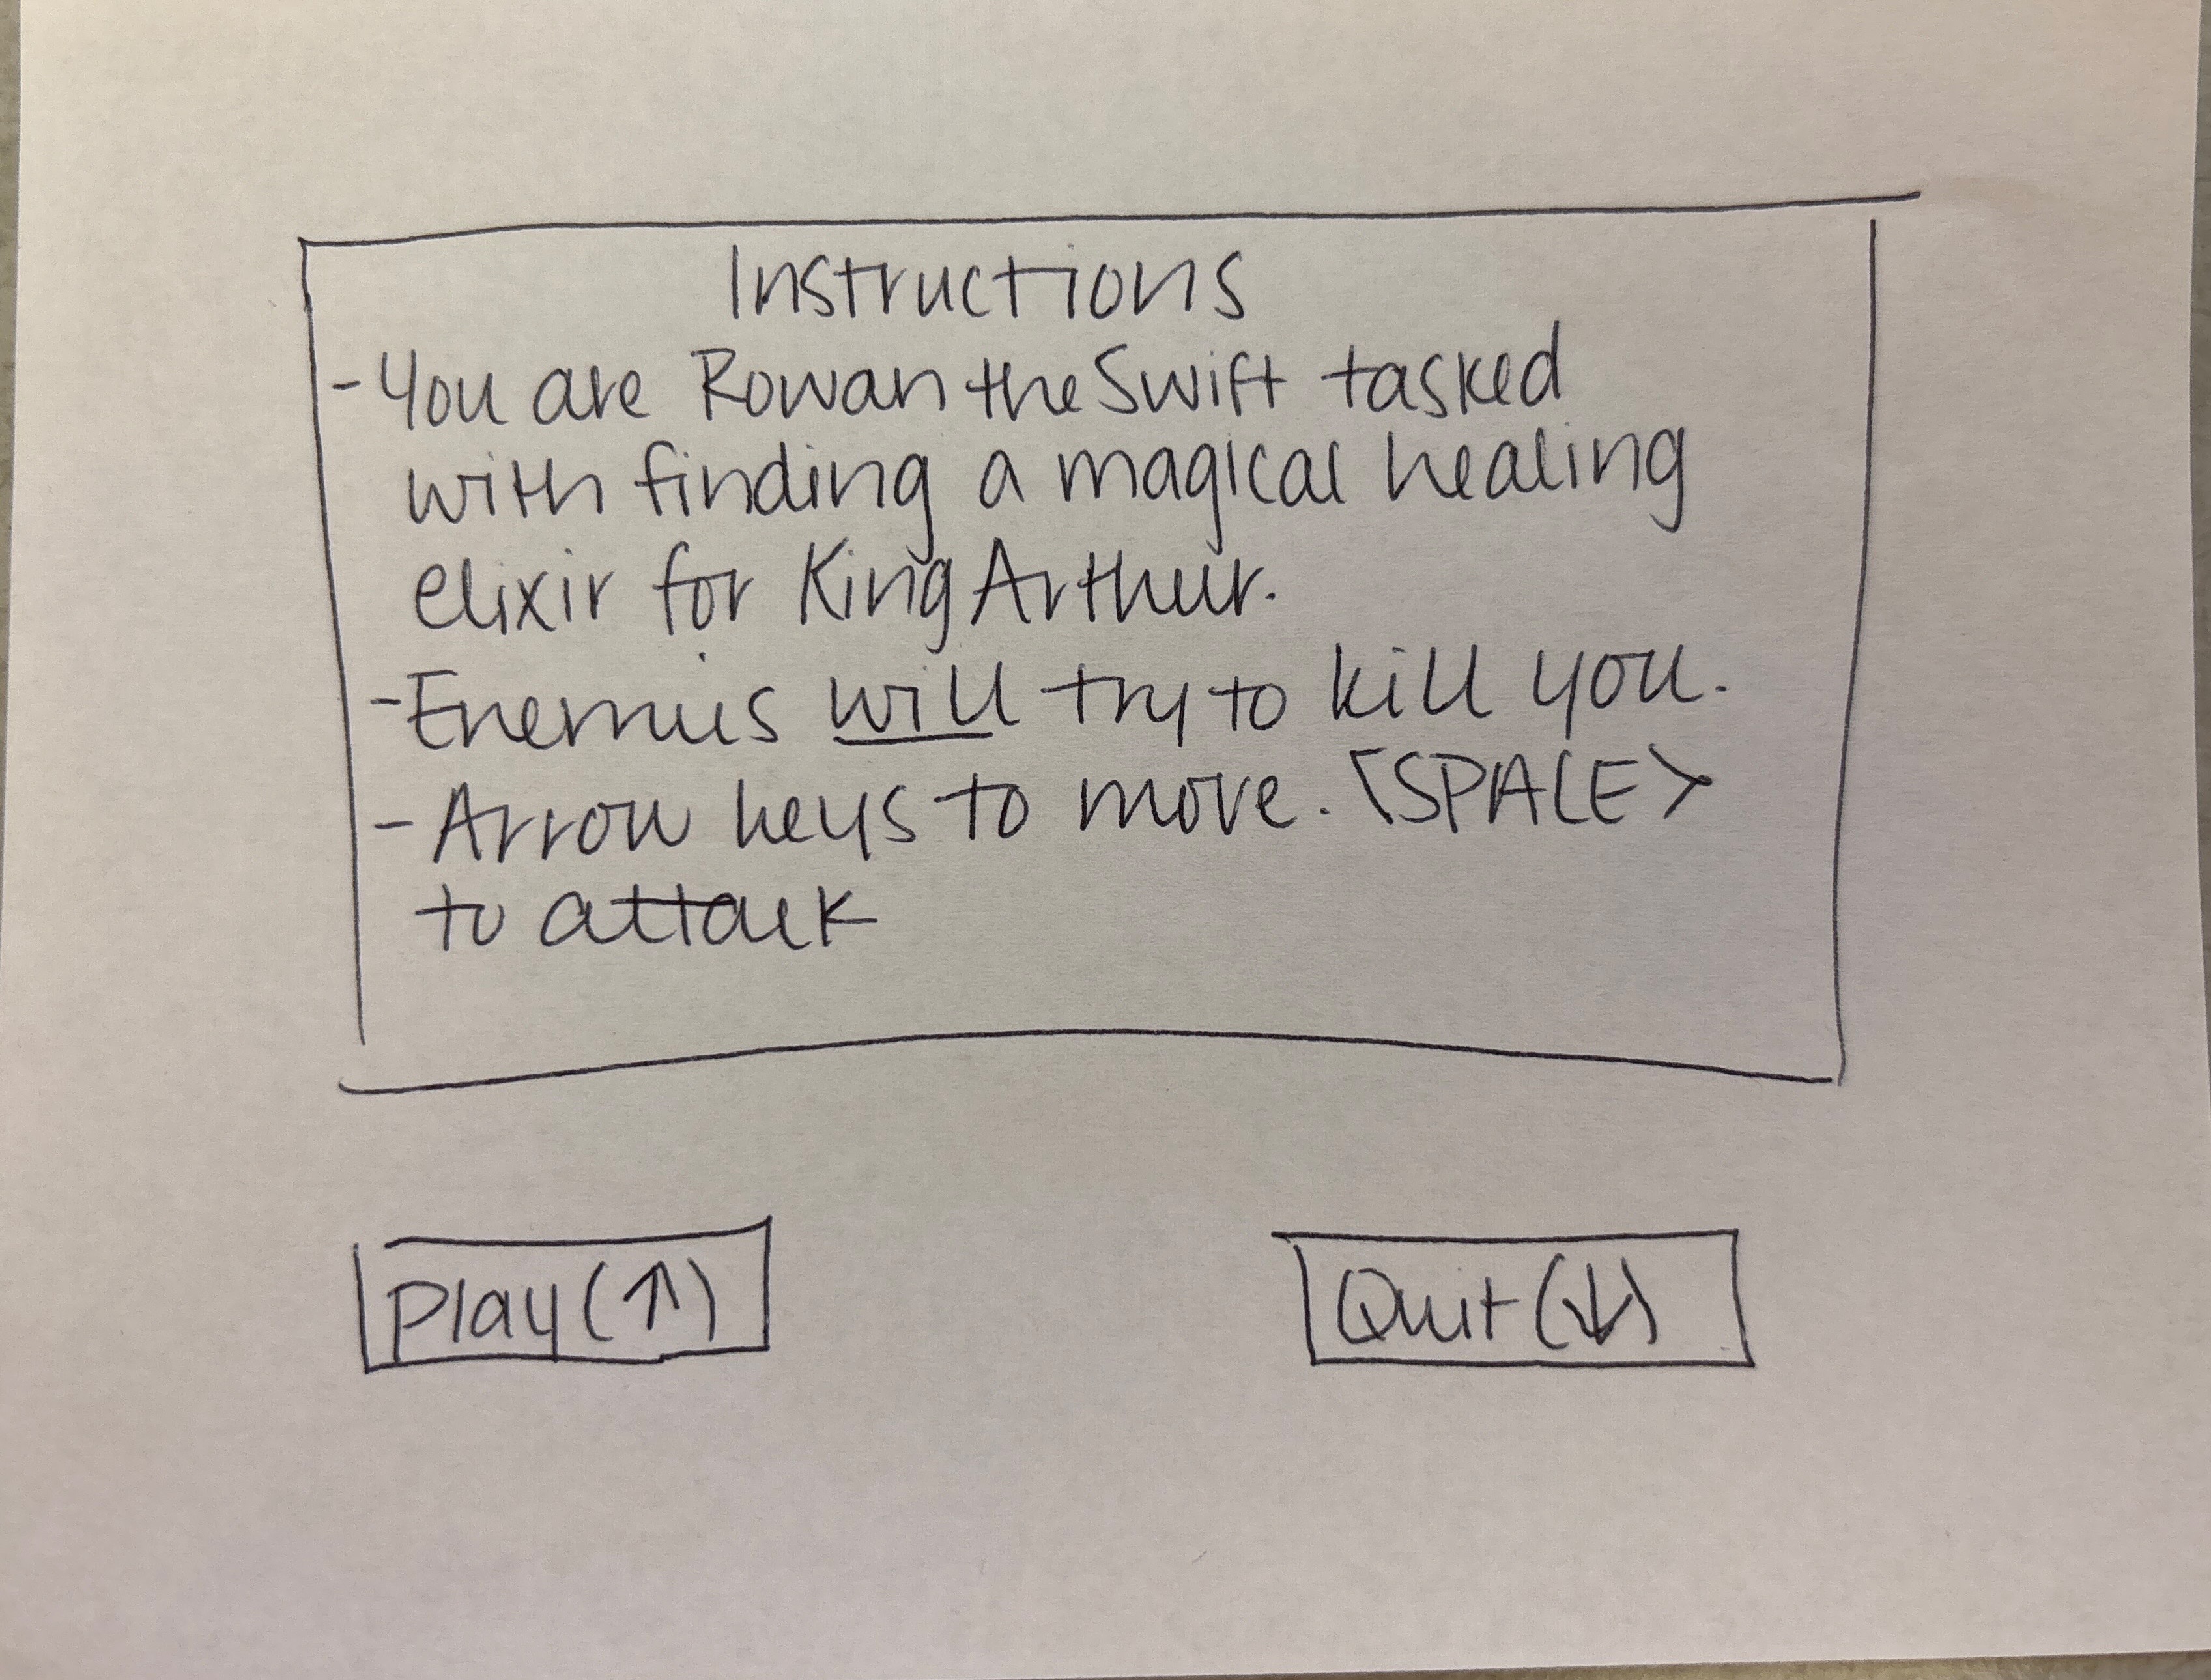 Instructions
-You are Rowan the Swift tasked
with finding a magical healing
elixir for King Arthur.
-Enemies will try to kill you.
-Arrow keys to move. <SPACE>
to attack
Play(↑)
Quit(↓)